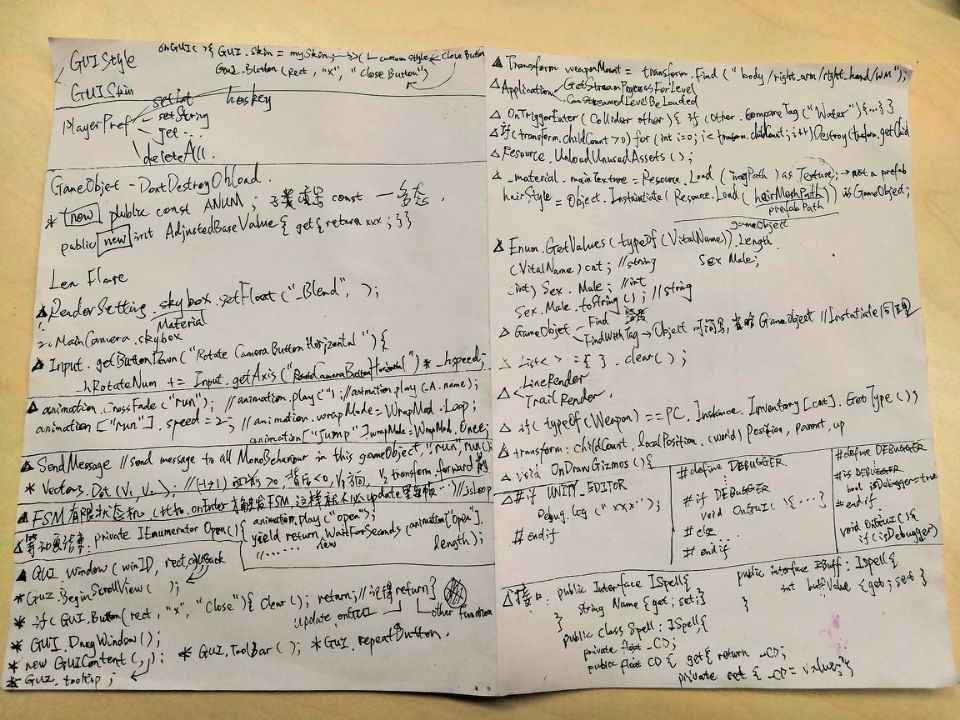 GUIStyle
onGUI( ){ GUI.skin = mySkin; → ( custom style ← Close Button
GUI.Button(rect, "x", "Close Button")
GUISkin
PlayerPref
setInt
setString
get...
deleteAll.
haskey
GameObjet - DontDestroyOnLoad.
* new public const ANUM ; 子 const 一 态
public new int AdjustedBaseValue{ get{return xxx;}}
Len Flare
1. RenderSetting.skybox.setFloat("_Blend", );
Material
2. MainCamera.skybox
Input.getButtonDown("Rotate Camera Button Horizontal"){
_hRotateNum += Input.getAxis("RotateCameraButtonHorizontal") * _hspeed;
animation.CrossFade("run"); //animation.play(""); //animation.play(A.name);
animation["run"].speed = 2; //animation.wrapMode = WrapMod.Loop;
animation["Jump"].wrapMode=WrapMod.Once;
SendMessage //send message to all MonoBehaviour in this gameObject, "run", run()
* Vector3.Dot(V₁,V₂); //(-1~1) >0 <0, V₁ V₂ transform.forward
FSM 有限状态机 (比如 onEnter FSM, 这样就不必update //isLoop
等动画结束: private IEnumerator Open(){ animation.play("open");
yield return new WaitForSeconds(animation["Open"].length);
//......
GUI.Window(winID, rect, callback
* GUI.BeginScrollView( );
* if(GUI.Button(rect, "x", "Close"){ Clear(); return; //记得return}
update onGUI
other function
* GUI.DragWindow();
* new GUIContent(,,);
* GUI.ToolBar( );
* GUI.repeatButton.
* GUI.tooltip;
Transform weaponMount = transform.Find("body/right_arm/right_hand/wm");
Application
GetStreamProgressForLevel
CanStreamedLevelBeLoaded
OnTriggerEnter(Collider other){ if (Other.CompareTag("Water"){...}}
if(transform.childCount>0) for(int i=0; i<transform.childCount; i++)Destroy(transform.getChild
Resource.UnloadUnusedAssets();
_material.mainTexture = Resource.Load("imgPath) as Texture; → not a prefab
hairStyle = Object.Instantiate(Resource.Load(hairMeshPath)) as GameObject;
prefabPath
gameObject
Enum.GetValues(typeOf(VitalName)).Length
(VitalName)cnt; //string
Sex Male;
(int) Sex.Male; //int
Sex.Male.toString(); //string
GameObject
Find
FindWithTag → Object 可 GameObject //Instantiate 同理
List< > = { }.clear();
LineRender
TrailRender
if(typeOf(Weapon) == PC.Instance.Inventory[cnt].GetType())
transform: childCount, localPosition, (world) Position, Parent, up
void OnDrawGizmos(){
#if UNITY_EDITOR
Debug.log("xxx");
#endif
#define DEBUGGER
#if DEBUGGER
void OnGUI(){...}
#else
#endif
#define DEBUGGER
#if DEBUGGER
bool isDebugger=true
#endif
void OnGUI(){
if(isDebugger)
接口: public Interface ISpell{
string Name {get; set;}
}
public class Spell: ISpell{
private float _CD;
public float CD { get{ return _CD;}
private set { _CD = value;}}
public interface IBuff: ISpell{
int buffValue {get; set}
}